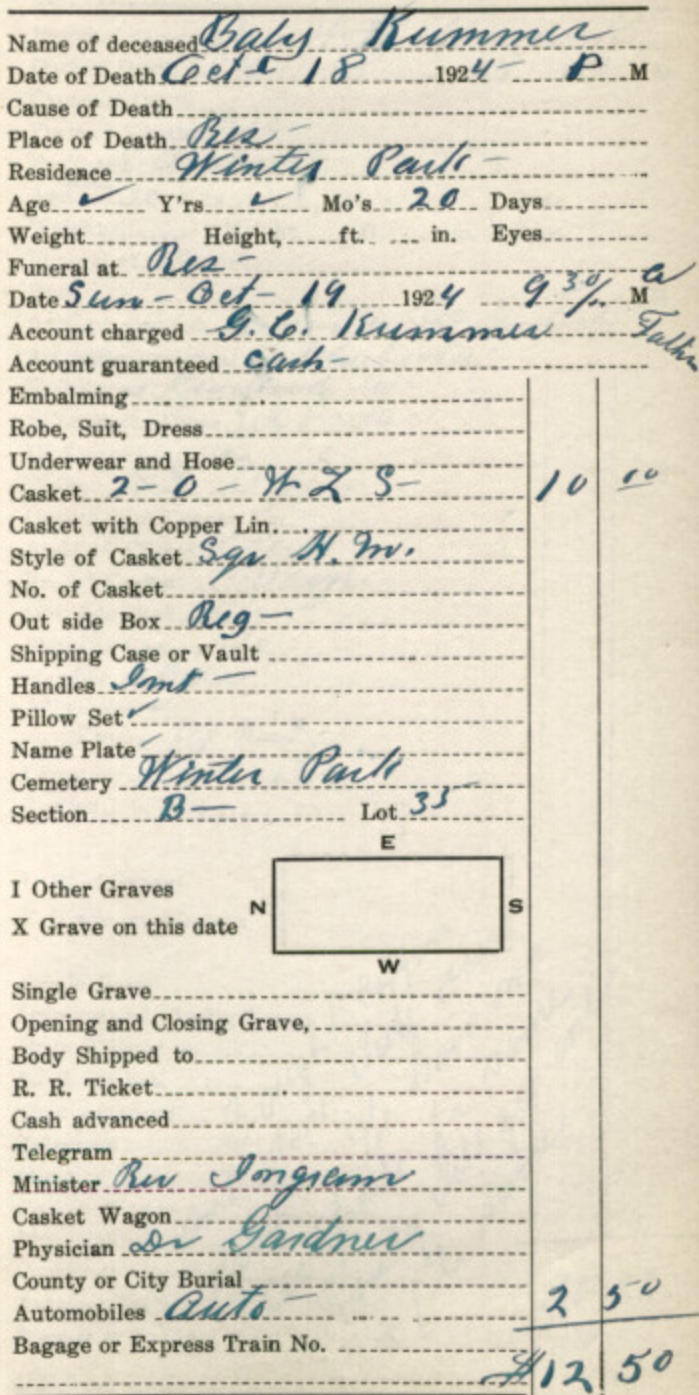 Name of deceased Baby Kummer
Date of Death Oct 18 1924 P M
Cause of Death
Place of Death Res -
Residence Winter Park -
Age ✓ Y'rs ✓ Mo's 20 Days
Weight Height, ft. in. Eyes
Funeral at Res -
Date Sun - Oct - 19 1924 9 30/ a M
Account charged G. C. Kummer Father
Account guaranteed Cash -
Embalming
Robe, Suit, Dress
Underwear and Hose
Casket 2 - 0 - W L S - 10 00
Casket with Copper Lin.
Style of Casket Sqr H. M.
No. of Casket
Out side Box Reg -
Shipping Case or Vault
Handles Imt -
Pillow Set ✓
Name Plate
Cemetery Winter Park
Section B - Lot 35
E
I Other Graves
N S
X Grave on this date
W
Single Grave
Opening and Closing Grave,
Body Shipped to
R. R. Ticket
Cash advanced
Telegram
Minister Rev Ingram
Casket Wagon
Physician Dr Gardner
County or City Burial
Automobiles Auto - 2 50
Bagage or Express Train No.
$12 50